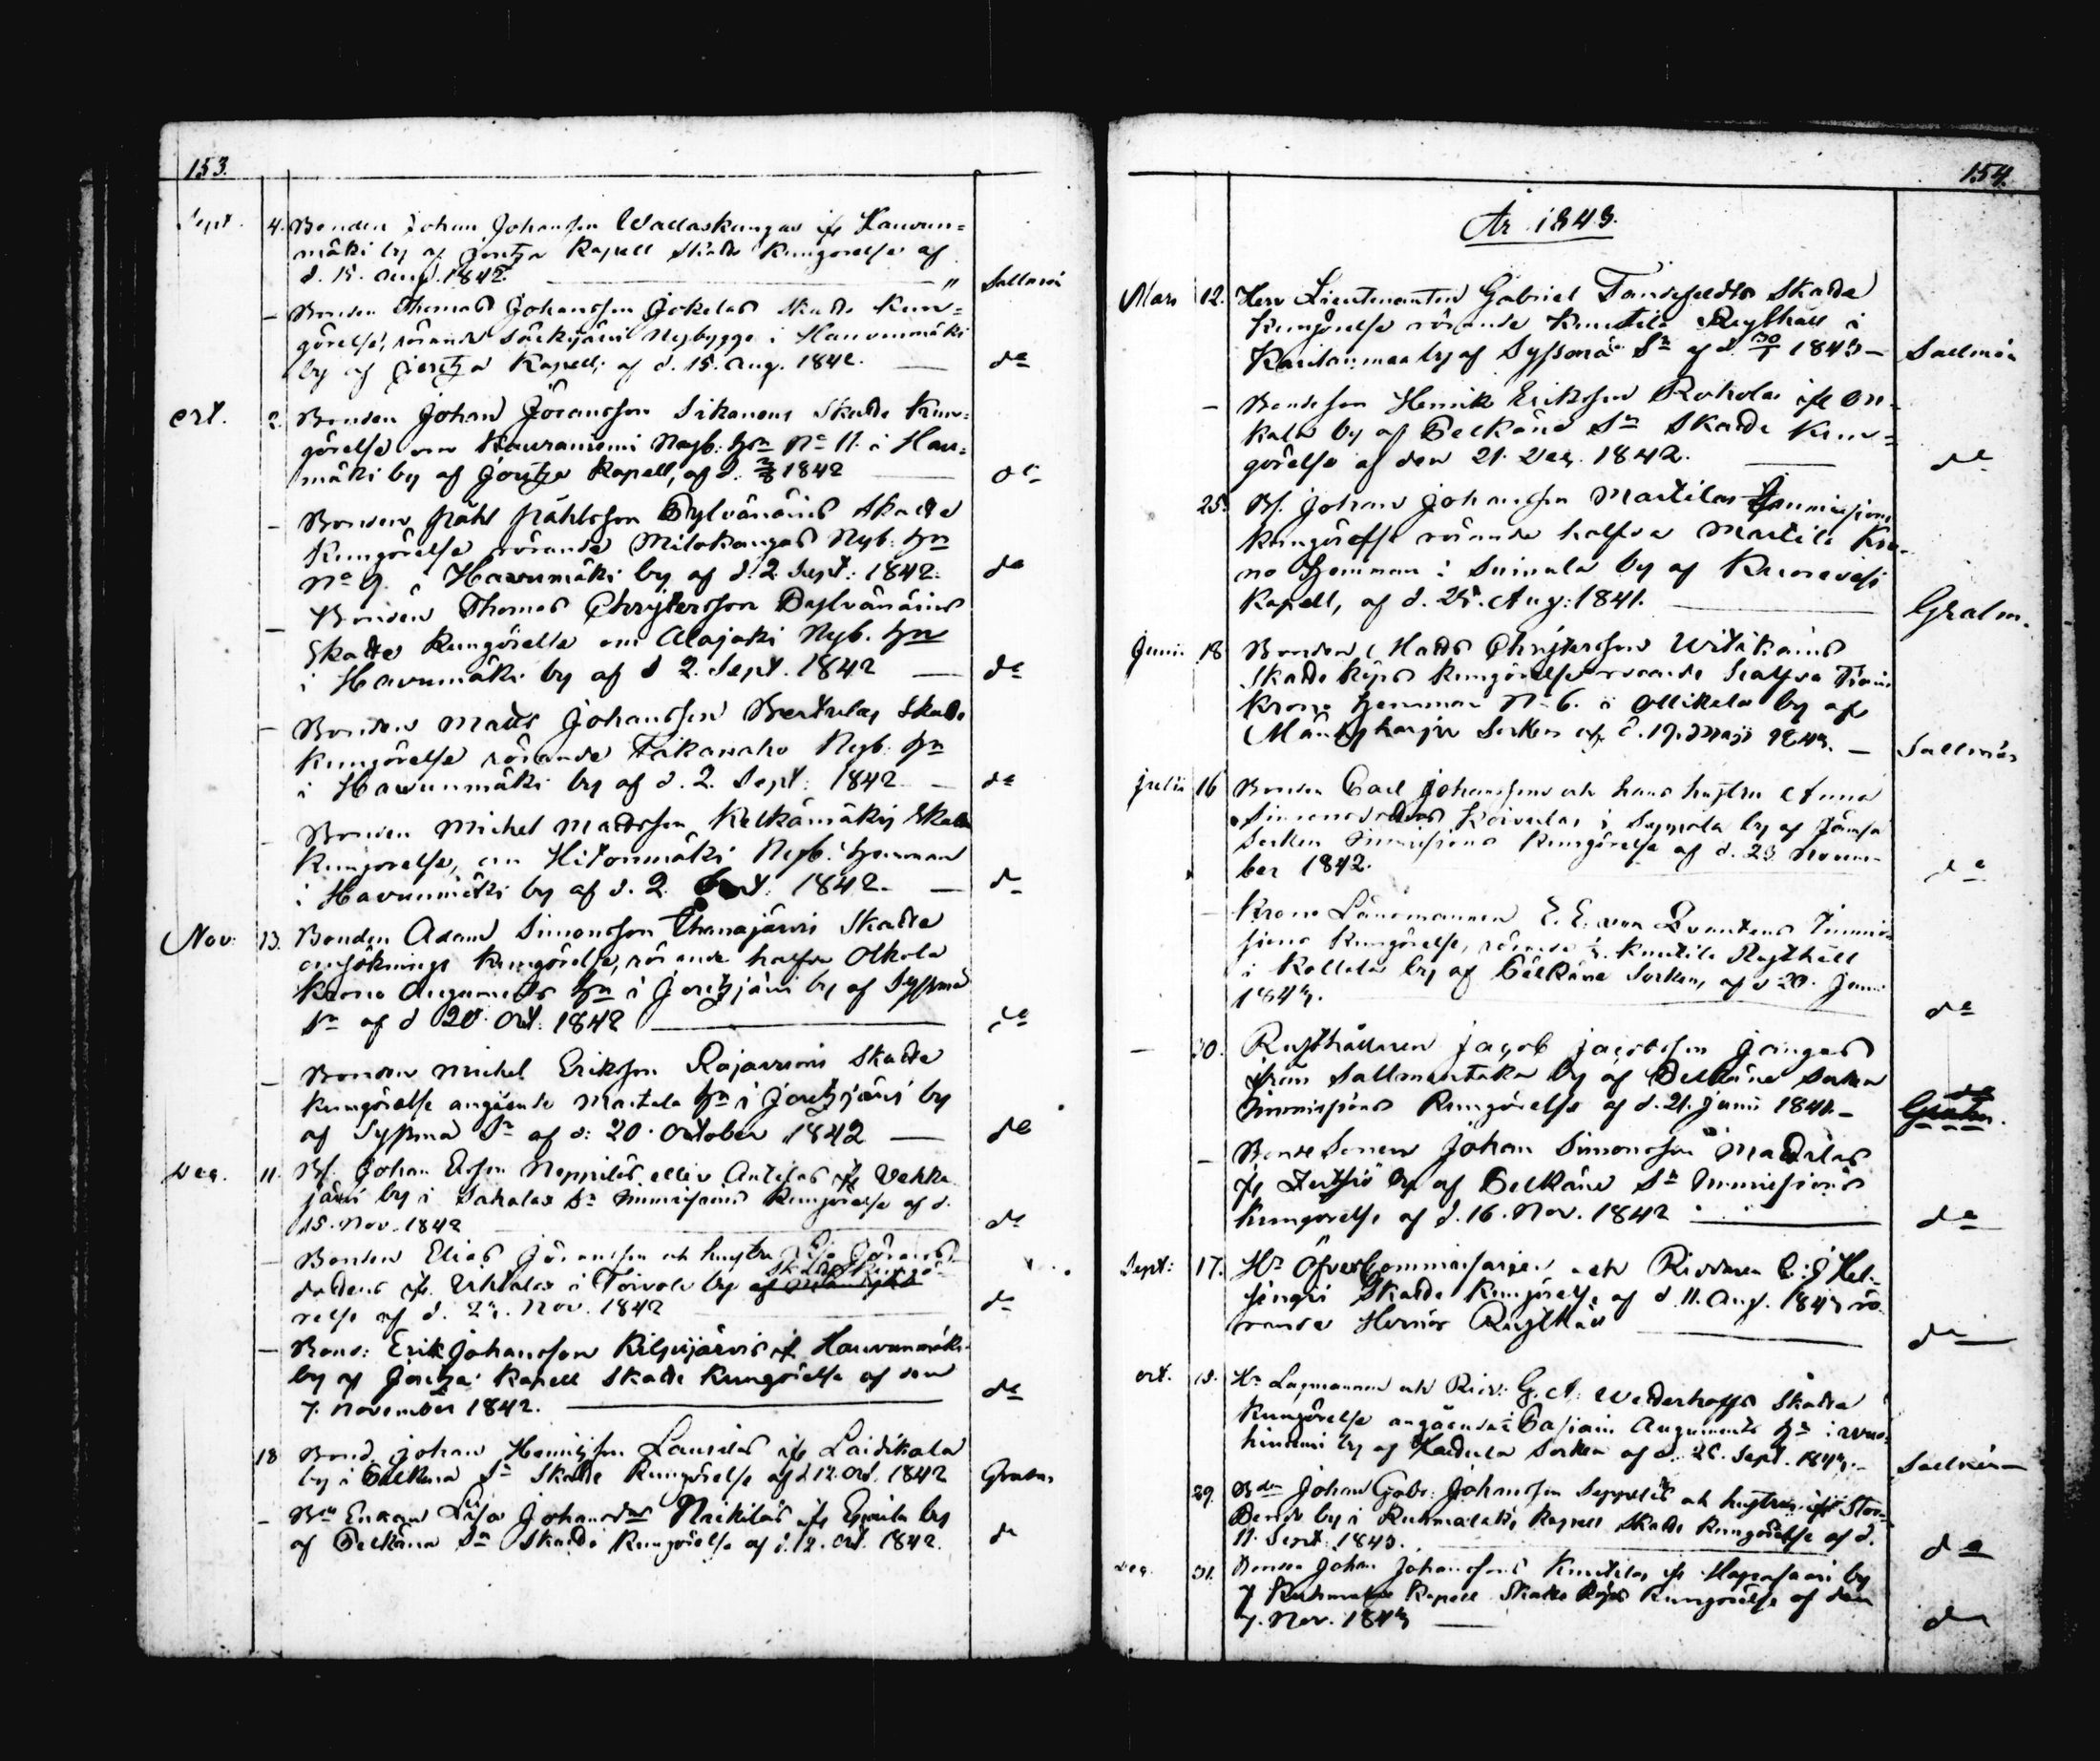 153.
Sept. 4. Bonden Johan Johansson Wallaskangas ifr Hauvun=
mäki by af Joutza Kapell Skatte Kungörelse af
d. 15. Aug. 1842. " Sallmén
— Bonden Thomas Johansson Jokelas Skatte Kun=
görelse, rörande Särkijärvi Nybygge i Hauvunmäki
by af Joutza Kapell, af d. 15. Aug. 1842. — do
Oct. 2. Bonden Johan Göransson Sikanens Skatte Kun=
görelse om Nyb. hn No 11. i Hau=
mäki by af Joutza Kapell, af d. 1842 — do
— Bonden Påhl Påhlsson Pylvänäins Skatte
Kungörelse rörande Milokangas Nyb. hn
No 9. i Havumäki by af d. 2. Sept. 1842. do
— Bonden Thomas Chrystersson Pylvänäins
Skatte Kungörelse om Alajoki Nyb. hn
i Havumäki by af d 2. Sept. 1842 — do
— Bonden Matts Johansson Perttulas Skatte
Kungörelse rörande Takanaho Nyb. hn
i Hawunmäki by af d. 2. Sept. 1842 — do
— Bonden Michel Mattsson Kelkämäkis Skatte
Kungörelse, om Hitonmäki Nyb. hemman
i Havunmäki by af d. 2. 1842. — do
Nov. 13. Bonden Adam Simonsson Skatte
ansöknings Kungörelse, rörande halfva Olkola
Krono Augments hn i Joutzjärvi by af Syssmä
Sn af d 20 Oct. 1842 — do
— Bonden Michel Eriksson Rajavuoris Skatte
Kungörelse angående Martula hn i Joutzjärvi by
af Syssmä Sn af d: 20. October 1842 — do
Dec. 11. Bd. Johan Ersson Neppilas eller Antilas ifr Vehka
järvi by i Sahalax Sn Immissions Kungörelse af d.
15. Nov. 1842 do
— Bonden Elias Göransson och hustru Lisa Görans
Skatte Kungö-
dotters ifr. Uhtalax i Toivola by
relse af d. Nov. 1842 do
— Bond: Erik Johansson Kilpijärvis if Hauvunmäki
by af Joutza Kapell Skatte Kungörelse af den
7. November 1842. — do
18 Bond. Johan Henricsson Laurilas ifr Laidikala
by i Pelkäne Sn Skatte Kungörelse af d 12. Oct. 1842 Grahn
— Bde Enkan Lisa Johansdr Heikilas ifr by
af Pelkäne Sn Skatte Kungörelse af d. 12. Oct. 1842. do
154.
År 1843.
Mars 12. Herr Lieutenanten Gabriel Tandefeldts Skatte
Kungörelse rörande Knutila Rusthåll i
by af Syssmä Sn af d. 30/1 1843 — Sallmén
— Bondeson Henrik Eriksson Rokolas ifr On-
kala by af Pelkäne Sn Skatte Kun=
görelse af den 21. Dec. 1842. — do
25. Bd. Johan Johansson Martilas Immissions
Kungörelse rörande halfva Martila Kro-
no Hemman i Suinula by af Kuorevesi
Kapell, af d. 25. Aug: 1841. — Grahn.
Junii 18 Bonden Matts Chrystersson Uitikains
Skatte Köps Kungörelse rörande halfva
Krono Hemman No 6. i Ollikala by af
Mäntyharju Socken af d. 19. Maji 1843. — Sallmén
Julii 16 Bonden Carl Johansson och hans hustru Anna
Simonsdotters Koivulas i Seppola by af Jämsä
Socken Immissions Kungörelse af d. 23 Novem-
ber 1842. do
— Krono Länsmannen E. E. von Immis-
sions Kungörelse, rörande ½ Knutila Rusthåll
i Kollola by af Pelkäne Socken, af d 20. Junii
1843. do
— 30. Rusthållaren Jacob Jacobsson
från Sallmentaka by af Pelkäne Socken
Immissions Kungörelse af d. 21. Junii 1841. — do
Grahn.
— Bonde Sonen Johan Simonsson Mattilas
ifr by af Pelkäne Sn Immissions
Kungörelse af d. 16. Nov. 1842 — do
Sept: 17. Hr Öfvercommissarien och Riddaren C: J Hel-
singii Skatte Kungörelse af d. 11. Aug. 1843 rö
rande Rusthåll do
Oct. 15. Hr Lagmannen och Ridd: G. A. Wetterhoffs Skatte
Kungörelse angående Augments hn i
by af Hattula Socken af d. 25. Sept. 1843. — Sallmén
29. Bden Johan Gabr: Johansson Seppäläs och hustrus ifr Stor-
Pendo by i Kuhmalaks Kapell Skatte Kungörelse af d.
11. Sept. 1843. do
Dec. 31. Bonden Johan Johanssons Knutilas ifr Haapasaari by
af Kuhmalax Kapell Skatte Köps Kungörelse af den
7. Nov. 1843 — do